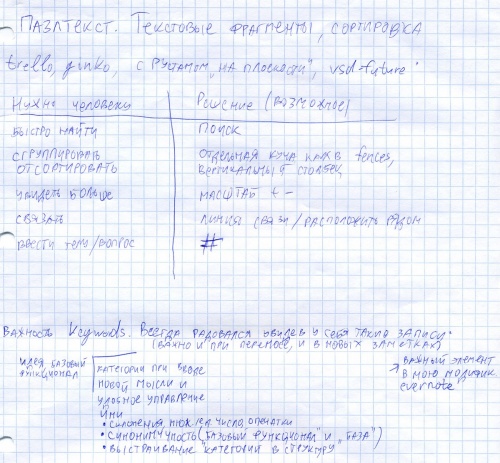 ПАЗЛТЕКСТ. ТЕКСТОВЫЕ ФРАГМЕНТЫ, СОРТИРОВКА
trello, ginko, С РУСТАМОМ „НА ПЛОСКОСТИ", vsd-future
НУЖНО ЧЕЛОВЕКУ РЕШЕНИЕ (ВОЗМОЖНОЕ)
БЫСТРО НАЙТИ ПОИСК
СГРУППИРОВАТЬ ОТДЕЛЬНАЯ КУЧА КАК В fences,
ОТСОРТИРОВАТЬ ВЕРТИКАЛЬНЫЙ СТОЛБЕЦ
УВИДЕТЬ БОЛЬШЕ МАСШТАБ + -
СВЯЗАТЬ ЛИНИЯ СВЯЗИ / РАСПОЛОЖИТЬ РЯДОМ
ВВЕСТИ ТЕМУ/ВОПРОС #
ВАЖНОСТЬ Keywords. ВСЕГДА РАДОВАЛСЯ УВИДЕВ У СЕБЯ ТАКУЮ ЗАПИСЬ.
(ВАЖНО И ПРИ ПЕРЕНОСЕ, И В НОВЫХ ЗАМЕТКАХ)
ИДЕЯ БАЗОВЫЙ ФУНКЦИОНАЛ
КАТЕГОРИИ ПРИ ВВОДЕ
НОВОЙ МЫСЛИ И
УДОБНОЕ УПРАВЛЕНИЕ
ИМИ
→ ВАЖНЫЙ ЭЛЕМЕНТ
В МОЮ МОДИФИК.
evernote
• СКЛОНЕНИЯ, ЧИСЛО, ОПЕЧАТКИ
• СИНОНИМИЧНОСТЬ („БАЗОВЫЙ ФУНКЦИОНАЛ" И „БАЗА")
• ВЫСТРАИВАНИЕ "КАТЕГОРИЙ В СТРУКТУРУ"